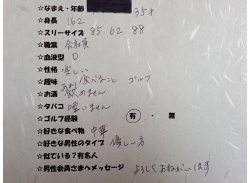 ☆なまえ・年齢 35才
☆身長 162
☆スリーサイズ 85 62 88
☆職業 会社員
☆血液型 O
☆性格 楽しい
☆趣味 食べること ゴルフ
☆お酒 飲めません
☆タバコ 吸いません
☆ゴルフ経験 有・無
☆好きな食べ物 中華
☆好きな男性のタイプ 優しい方
☆似ている?有名人
☆男性会員さまへメッセージ
よろしくおねがいします